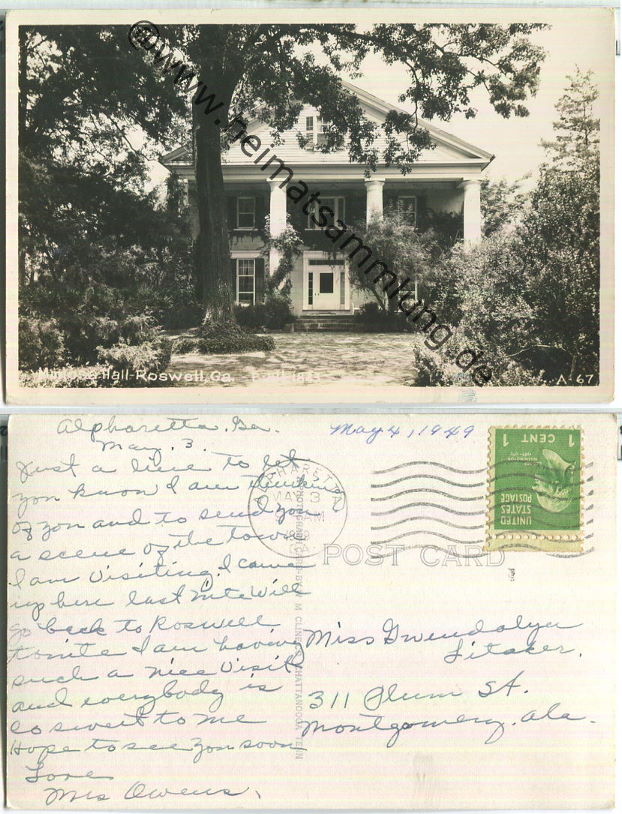 @www.heimatsammlung.de
Mimosa Hall-Roswell, Ga.
A-67
Alpharetta, Ga.
May, 3.
May 4, 1949
Just a line to let
you know I am thinking
of you and to send you
a scene of the town
I am visiting. I came
up here last nite Will
go back to Roswell
tonite I am having
such a nice visit
and everybody is
so sweet to me
Hope to see you soon
Love
Mrs Owens.
ALPHARETTA
MAY 3
AM
1 CENT 1
UNITED
STATES
POSTAGE
POST CARD
CLINE CHATTANOOGA TENN
Miss Gwendolyn
311 Plum St.
Montgomery, Ala.